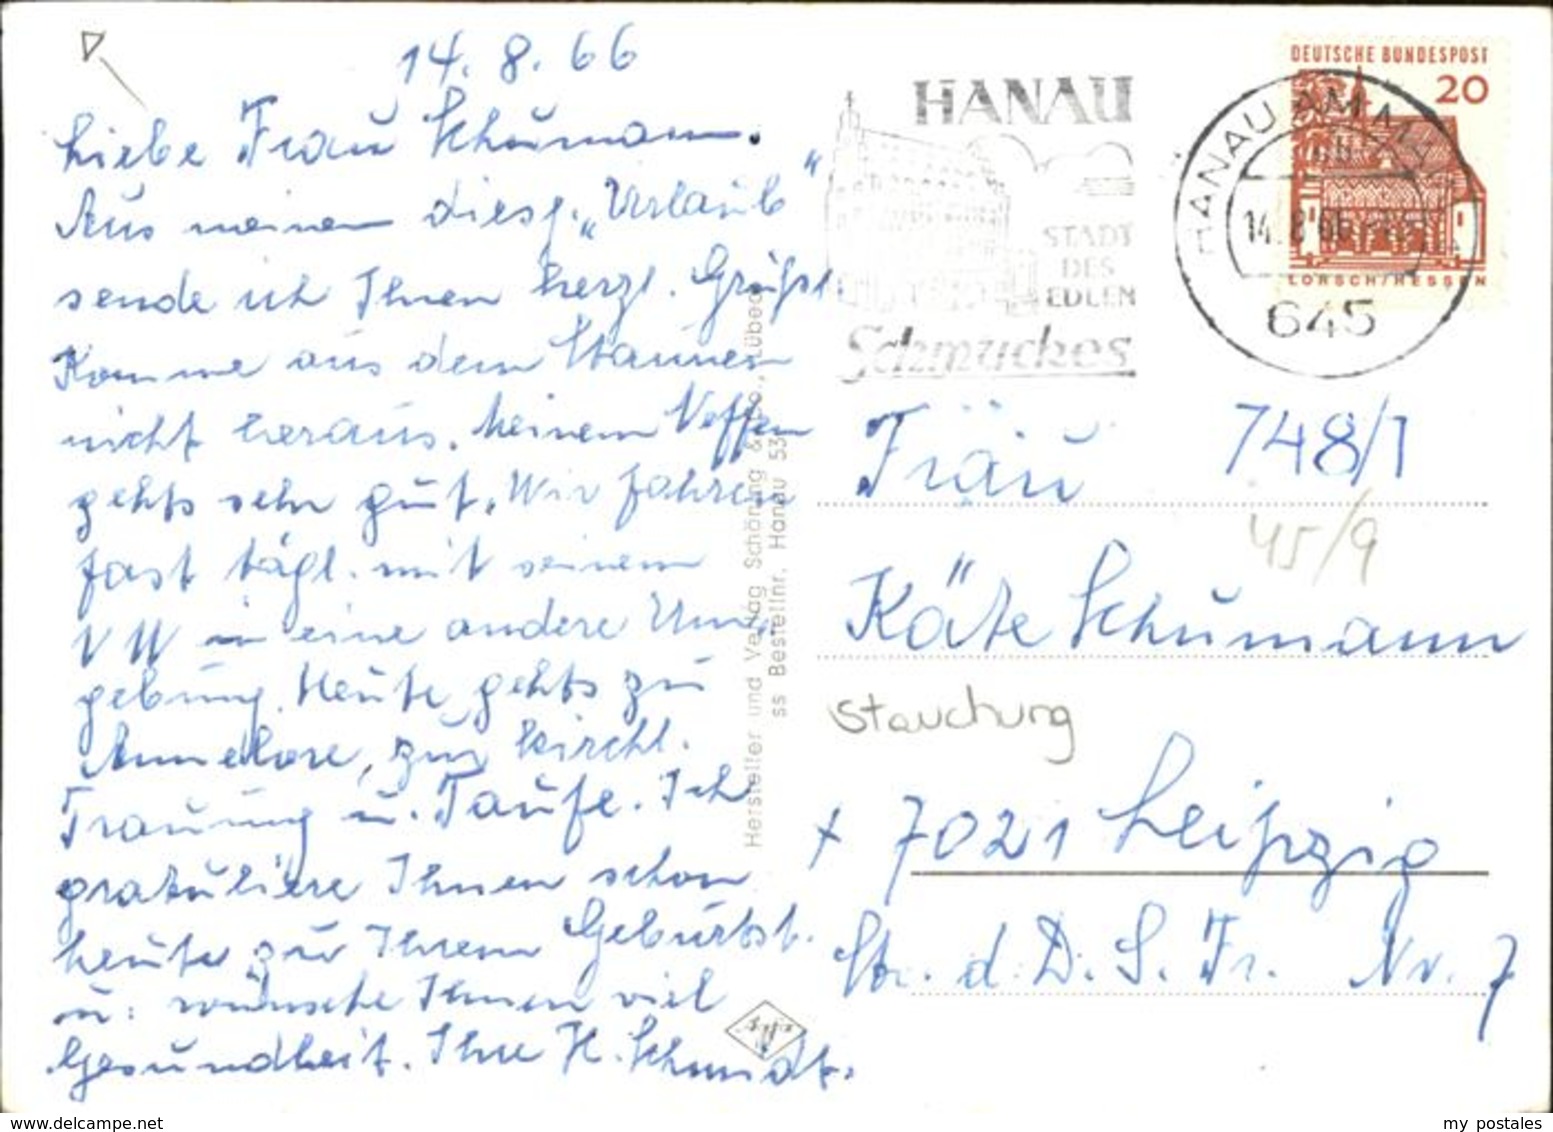 14. 8. 66
Liebe Frau Schumann.
Aus meinem diesj. „Urlaub"
sende ich Ihnen herzl. Grüße
Komme aus dem Staunen
nicht heraus. Meinem Neffen
gehts sehr gut. Wir fahren
fast tägl. mit seinem
VW in eine andere Um-
gebung. Heute gehts zu
Annelore, zur kirchl.
Trauung u. Taufe. Ich
gratuliere Ihnen schon
heute zu Ihrem Geburtst.
u. wünsche Ihnen viel
Gesundheit. Ihre H. Schmidt.
Hersteller und Verlag Schöning & Co., Lübeck
ss Bestellnr. Hanau 53
HANAU
STADT
DES
EDLEN
Schmuckes
DEUTSCHE BUNDESPOST
20
LORSCH/HESSEN
HANAU AM MAIN
14.8.66
645
Frau
748/1
45/9
Käte Schumann
Stauchung
+ 7021 Leipzig
Str. d. D. S. Fr. Nr. 7
my postales